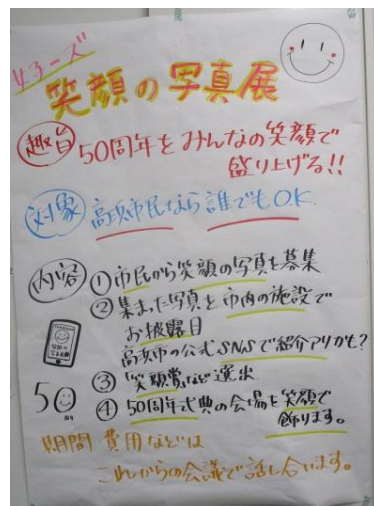 女子ーズ
笑顔の写真展
趣旨 50周年をみんなの笑顔で
盛り上げる!!
対象 高浜市民なら誰でもOK
内容 ①市民から笑顔の写真を募集
②集まった写真を市内の施設で
お披露目
高浜市の公式SNSで紹介アリかも?
③笑顔賞など選出
④50周年式典の会場を笑顔で
飾ります。
50
周年
期間 費用などは
これからの会議で話し合います。